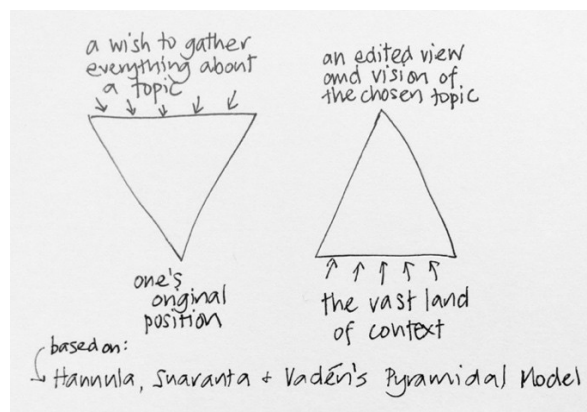 a wish to gather
everything about
a topic
one's
original
position
an edited view
and vision of
the chosen topic
the vast land
of context
based on:
Hannula, Suoranta + Vadén's Pyramidal Model